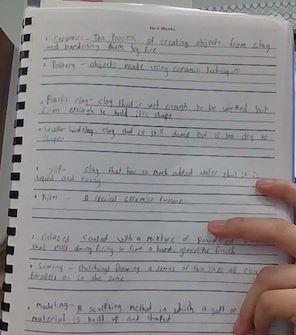 • Ceramics - The Process of creating objects from clay
and hardening them by fire
• Pottery - objects made using ceramic techniques
• Plastic clay - clay that is wet enough to be worked but
firm enough to hold its shape
• Leather hard clay clay that is still damp but is too dry to
shape
• Slip - clay that has so much added water that it is
liquid and runny
• Kiln - A special ceramics furnace
• Glazed coated with a mixture of powdered
that melt during firing to form a hard, glasslike finish
• Scoring - a series of thin lines all
parallel or in the same
• modeling - A sculpting method in which a soft or
material is built up and shaped